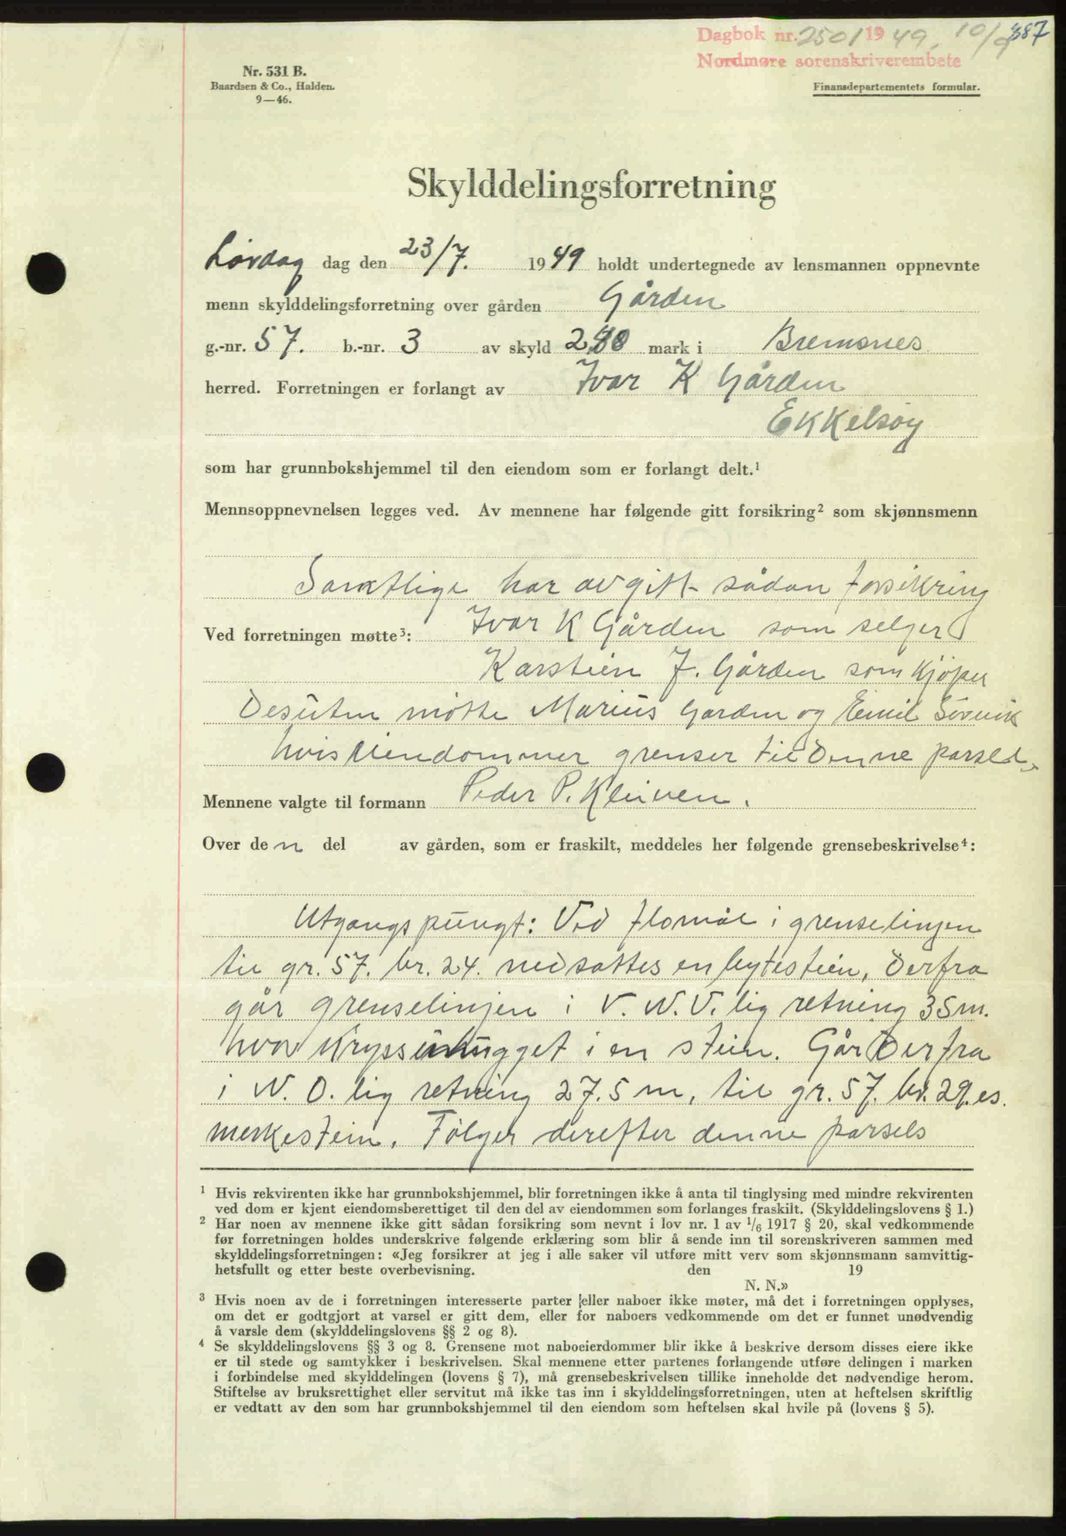 Dagbok nr. 2501 1949, 10/9 387
Nordmøre sorenskriverembete
Nr. 531 B.
Baardsen & Co., Halden.
9—46.
Finansdepartementets formular.
Skylddelingsforretning
Lørdag dag den 23/7. 1949 holdt undertegnede av lensmannen oppnevnte
menn skylddelingsforretning over gården Gården
g.-nr. 57. b.-nr. 3 av skyld mark i Bremsnes
herred. Forretningen er forlangt av Ivar K Gården
Ekkelsøy
som har grunnbokshjemmel til den eiendom som er forlangt delt.¹
Mennsoppnevnelsen legges ved. Av mennene har følgende gitt forsikring² som skjønnsmenn
Samtlige har avgitt sådan forsikring
Ved forretningen møtte³: Ivar K Gården som selger
Karstein J. Gården som kjøper
Desuten møtte Marius Garden og Emil Sørvik
hvis eiendommer grenser til denne parsel.
Mennene valgte til formann Peder P. Kleiven.
Over den del av gården, som er fraskilt, meddeles her følgende grensebeskrivelse⁴:
Utgangspungt: Ved flomål i grenselinjen
til gr. 57. br. 24. nedsattes en bytestein, derfra
går grenselinjen i V. N. V. lig retning 35 m.
hvor kryss innhugget i en stein. Går derfra
i N. O. lig retning 27.5 m, til gr. 57. br. 29. es.
merkestein. Følger derefter denne parsels
¹ Hvis rekvirenten ikke har grunnbokshjemmel, blir forretningen ikke å anta til tinglysing med mindre rekvirenten
ved dom er kjent eiendomsberettiget til den del av eiendommen som forlanges fraskilt. (Skylddelingslovens § 1.)
² Har noen av mennene ikke gitt sådan forsikring som nevnt i lov nr. 1 av 1/6 1917 § 20, skal vedkommende
før forretningen holdes underskrive følgende erklæring som blir å sende inn til sorenskriveren sammen med
skylddelingsforretningen: «Jeg forsikrer at jeg i alle saker vil utføre mitt verv som skjønnsmann samvittig-
hetsfullt og etter beste overbevisning. den 19
N. N.»
³ Hvis noen av de i forretningen interesserte parter eller naboer ikke møter, må det i forretningen opplyses,
om det er godtgjort at varsel er gitt dem, eller for naboers vedkommende om det er funnet unødvendig
å varsle dem (skylddelingslovens §§ 2 og 8).
⁴ Se skylddelingslovens §§ 3 og 8. Grensene mot naboeierdommer blir ikke å beskrive dersom disses eiere ikke
er til stede og samtykker i beskrivelsen. Skal mennene etter partenes forlangende utføre delingen i marken
i forbindelse med skylddelingen (lovens § 7), må grensebeskrivelsen tillike inneholde det nødvendige herom.
Stiftelse av bruksrettighet eller servitut må ikke tas inn i skylddelingsforretningen, uten at heftelsen skriftlig
er vedtatt av den som har grunnbokshjemmel til den eiendom som heftelsen skal hvile på (lovens § 5).